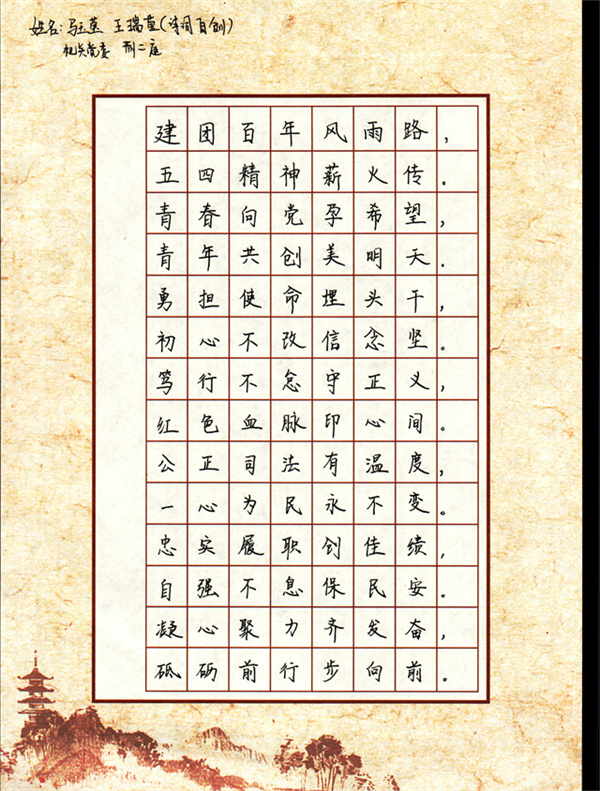 姓名: 马玉莲 王瑞莲(诗词自创)
机关党委 刑二庭
建团百年风雨路,
五四精神薪火传。
青春向党孕希望,
青年共创美明天.
勇担使命埋头干,
初心不改信念坚。
笃行不怠守正义,
红色血脉印心间。
公正司法有温度,
一心为民永不变。
忠实履职创佳绩,
自强不息保民安。
凝心聚力齐发奋,
砥砺前行步向前。